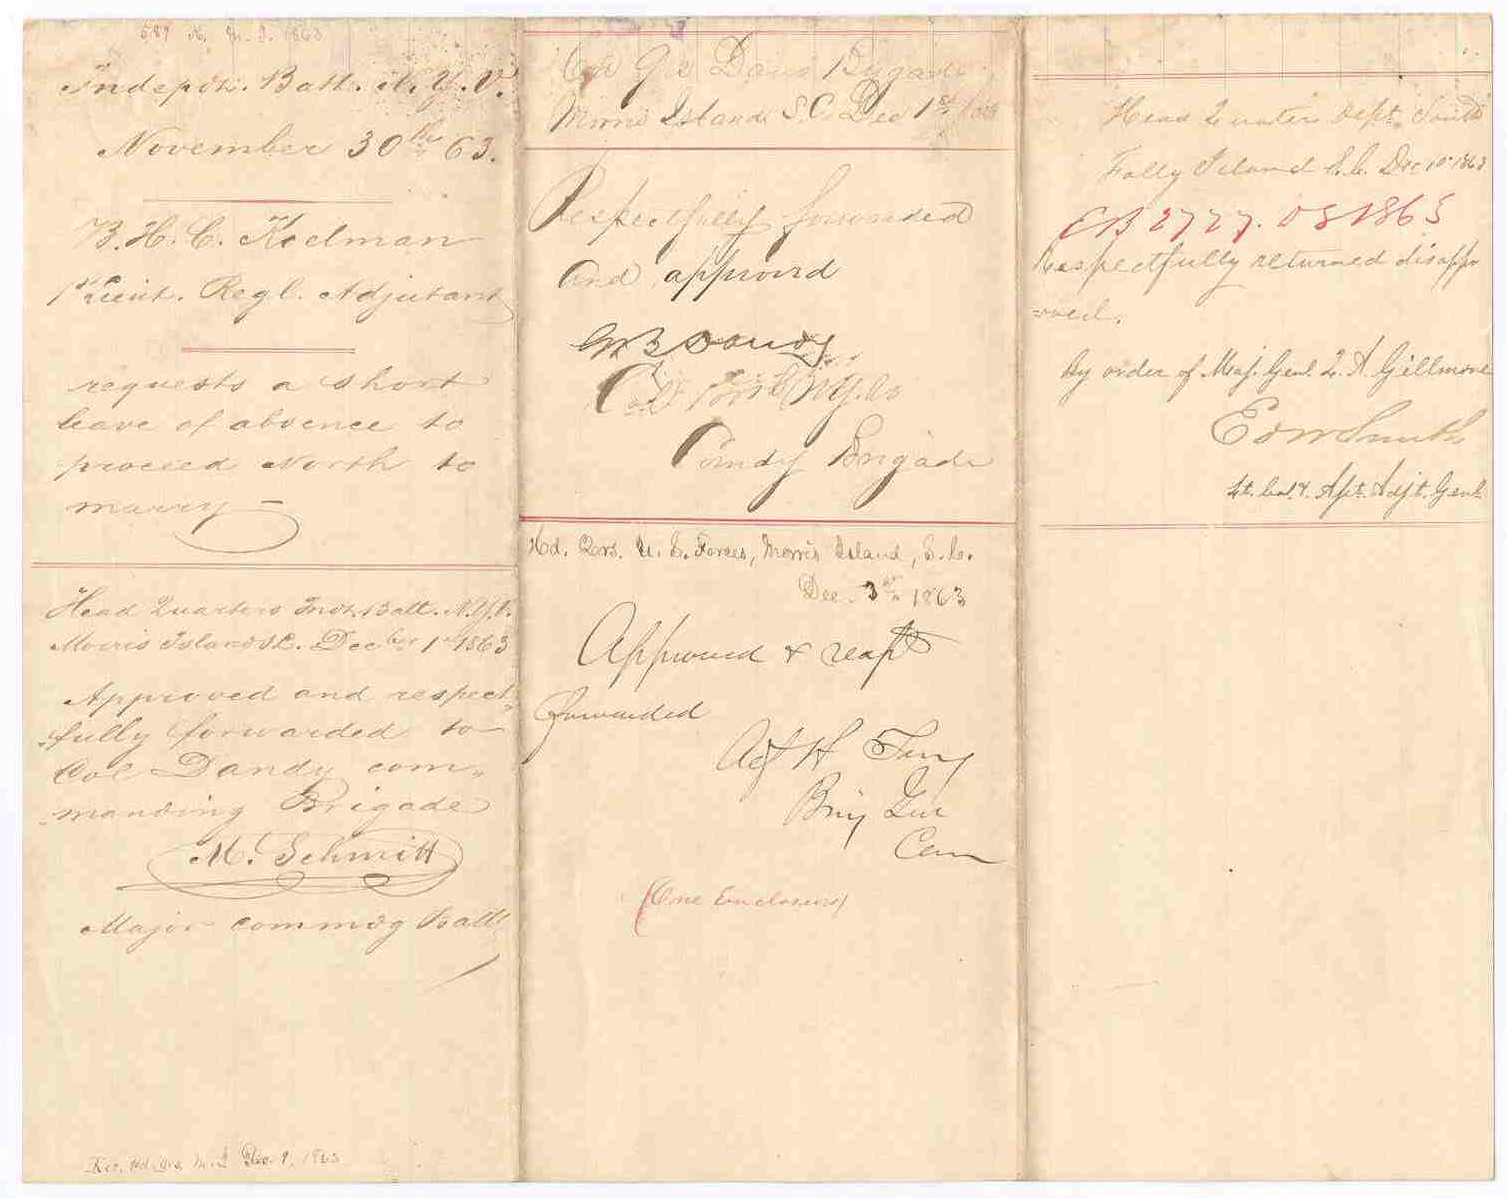 589 N. M. I. 1863
Indepdt. Batt. N.Y.V.
November 30th 63.
B. H. C. Keelman
1st Lieut. Regl. Adjutant
requests a short
leave of absence to
proceed North to
marry -
Head Quarters Indt. Batt. N.Y.V.
Morris Island S.C. Decber 1st 1863
Approved and respect-
fully forwarded to
Col Dandy com-
manding Brigade
M. Schmitt
Major commdg Batt
Rec. Hd. Qrs. M.I. Dec. 1, 1863
Hd Qrs Davis Brigade
Morris Island S.C. Dec 1st
Respectfully forwarded
and approved
G B Dandy
Col N.Y.
Comdg Brigade
Hd. Qrs. U. S. Forces, Morris Island, S.C.
Dec. 3rd 1863
Approved & respt
forwarded
Alf H Terry
Brig Gen
Com
(One Enclosure)
Head Quarters Dept. South
Folly Island S.C. Dec 10 1863
EB 2727. DS 1863
Respectfully returned disappr
=oved.
By order of Maj. Genl. Q. A. Gillmore
Ed W Smith
Lt. Col. & Asst. Adjt. Genl.